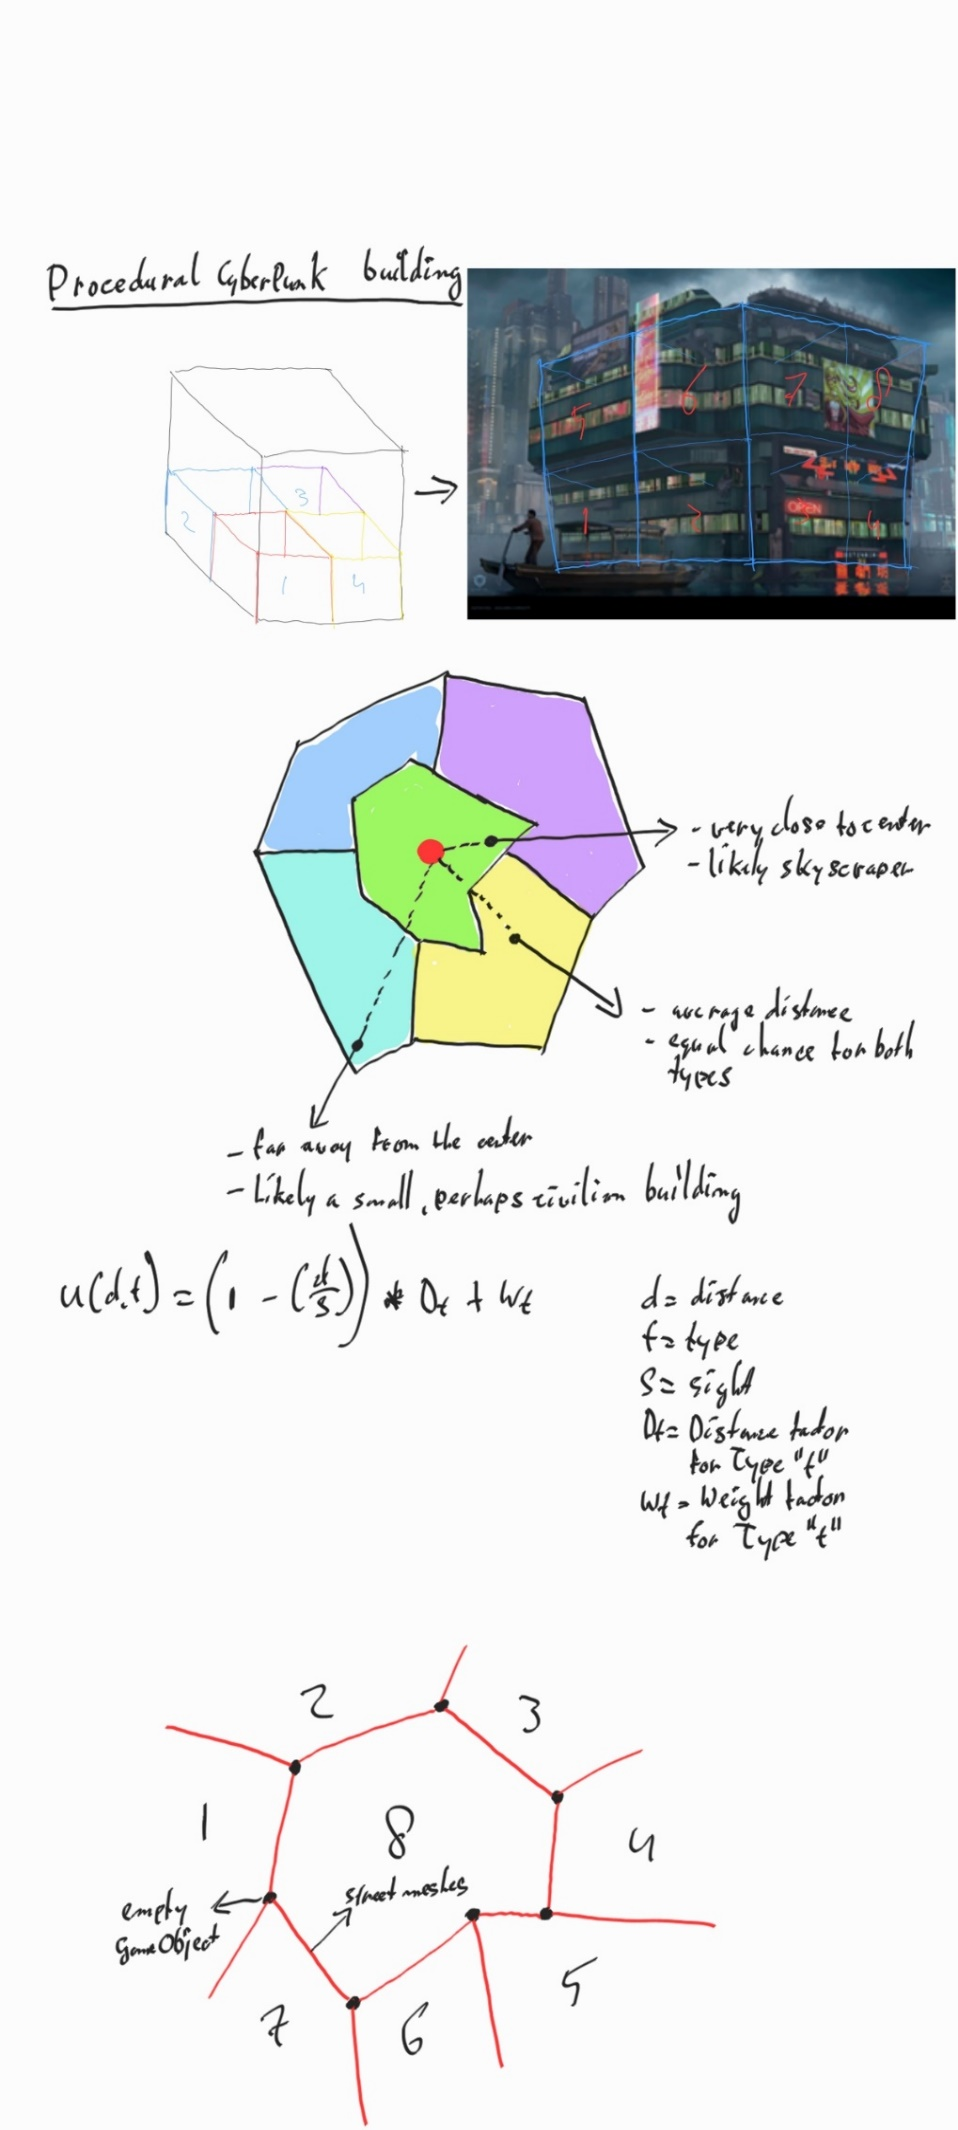 Procedural CyberPunk building
5
6
7
8
3
2
1
4
1
2
OPEN
3
4
- very close to center
- likely skyscraper
- average distance
- equal chance for both
types
- far away from the center
- Likely a small, perhaps civilian building
u(d,t) = (1 - (d/s)) * Dt + Wt
d = distance
t = type
S = sight
Dt = Distance factor
for Type "t"
Wt = Weight factor
for Type "t"
2
3
1
8
4
street meshes
empty
GameObject
5
7
6